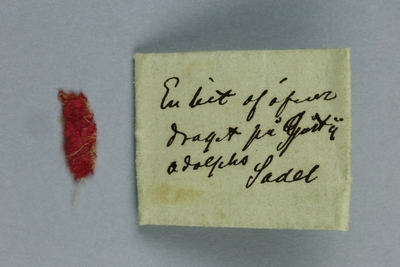 En bit af öfver
draget på Gustaf
adolphs
Sadel